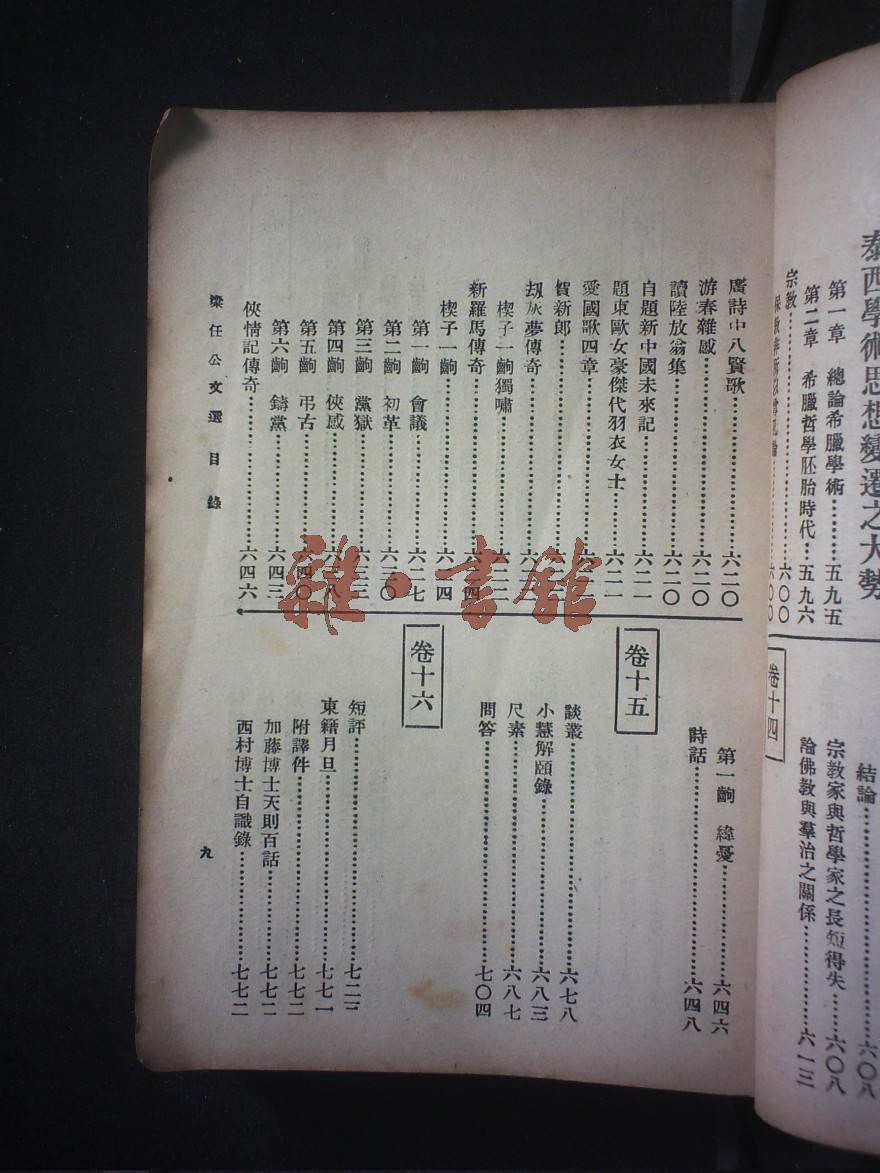 泰西學術思想變遷之大勢
第一章　總論希臘學術…………五九五
第二章　希臘哲學胚胎時代…五九六
宗教…………六〇〇
結論…………六〇八
宗教家與哲學家之長短得失……六〇八
論佛教與羣治之關係…………六一三
卷十四
廣詩中八賢歌…………六二〇
游春雜感…………六二〇
讀陸放翁集…………六二〇
自題新中國未來記…………六二一
題東歐女豪傑代羽衣女士…………六二一
愛國歌四章…………
賀新郎…………
刼灰夢傳奇…………
楔子一齣獨嘯…………六二二
新羅馬傳奇…………
楔子一齣…………六二四
第一齣　會議…………六二七
第二齣　初革…………六三〇
第三齣　黨獄…………六三三
第四齣　俠感…………
第五齣　弔古…………六四〇
第六齣　鑄黨…………六四三
俠情記傳奇…………六四六
第一齣　緯憂…………六四六
詩話…………六四八
卷十五
談叢…………六七八
小慧解頤錄…………六八三
尺素…………六八七
問答…………七〇四
卷十六
短評…………七二三
東籍月旦…………七七一
附譯件…………七七二
加藤博士天則百話…………七七二
西村博士自識錄…………七七二
梁任公文選目錄
九
雜·書館